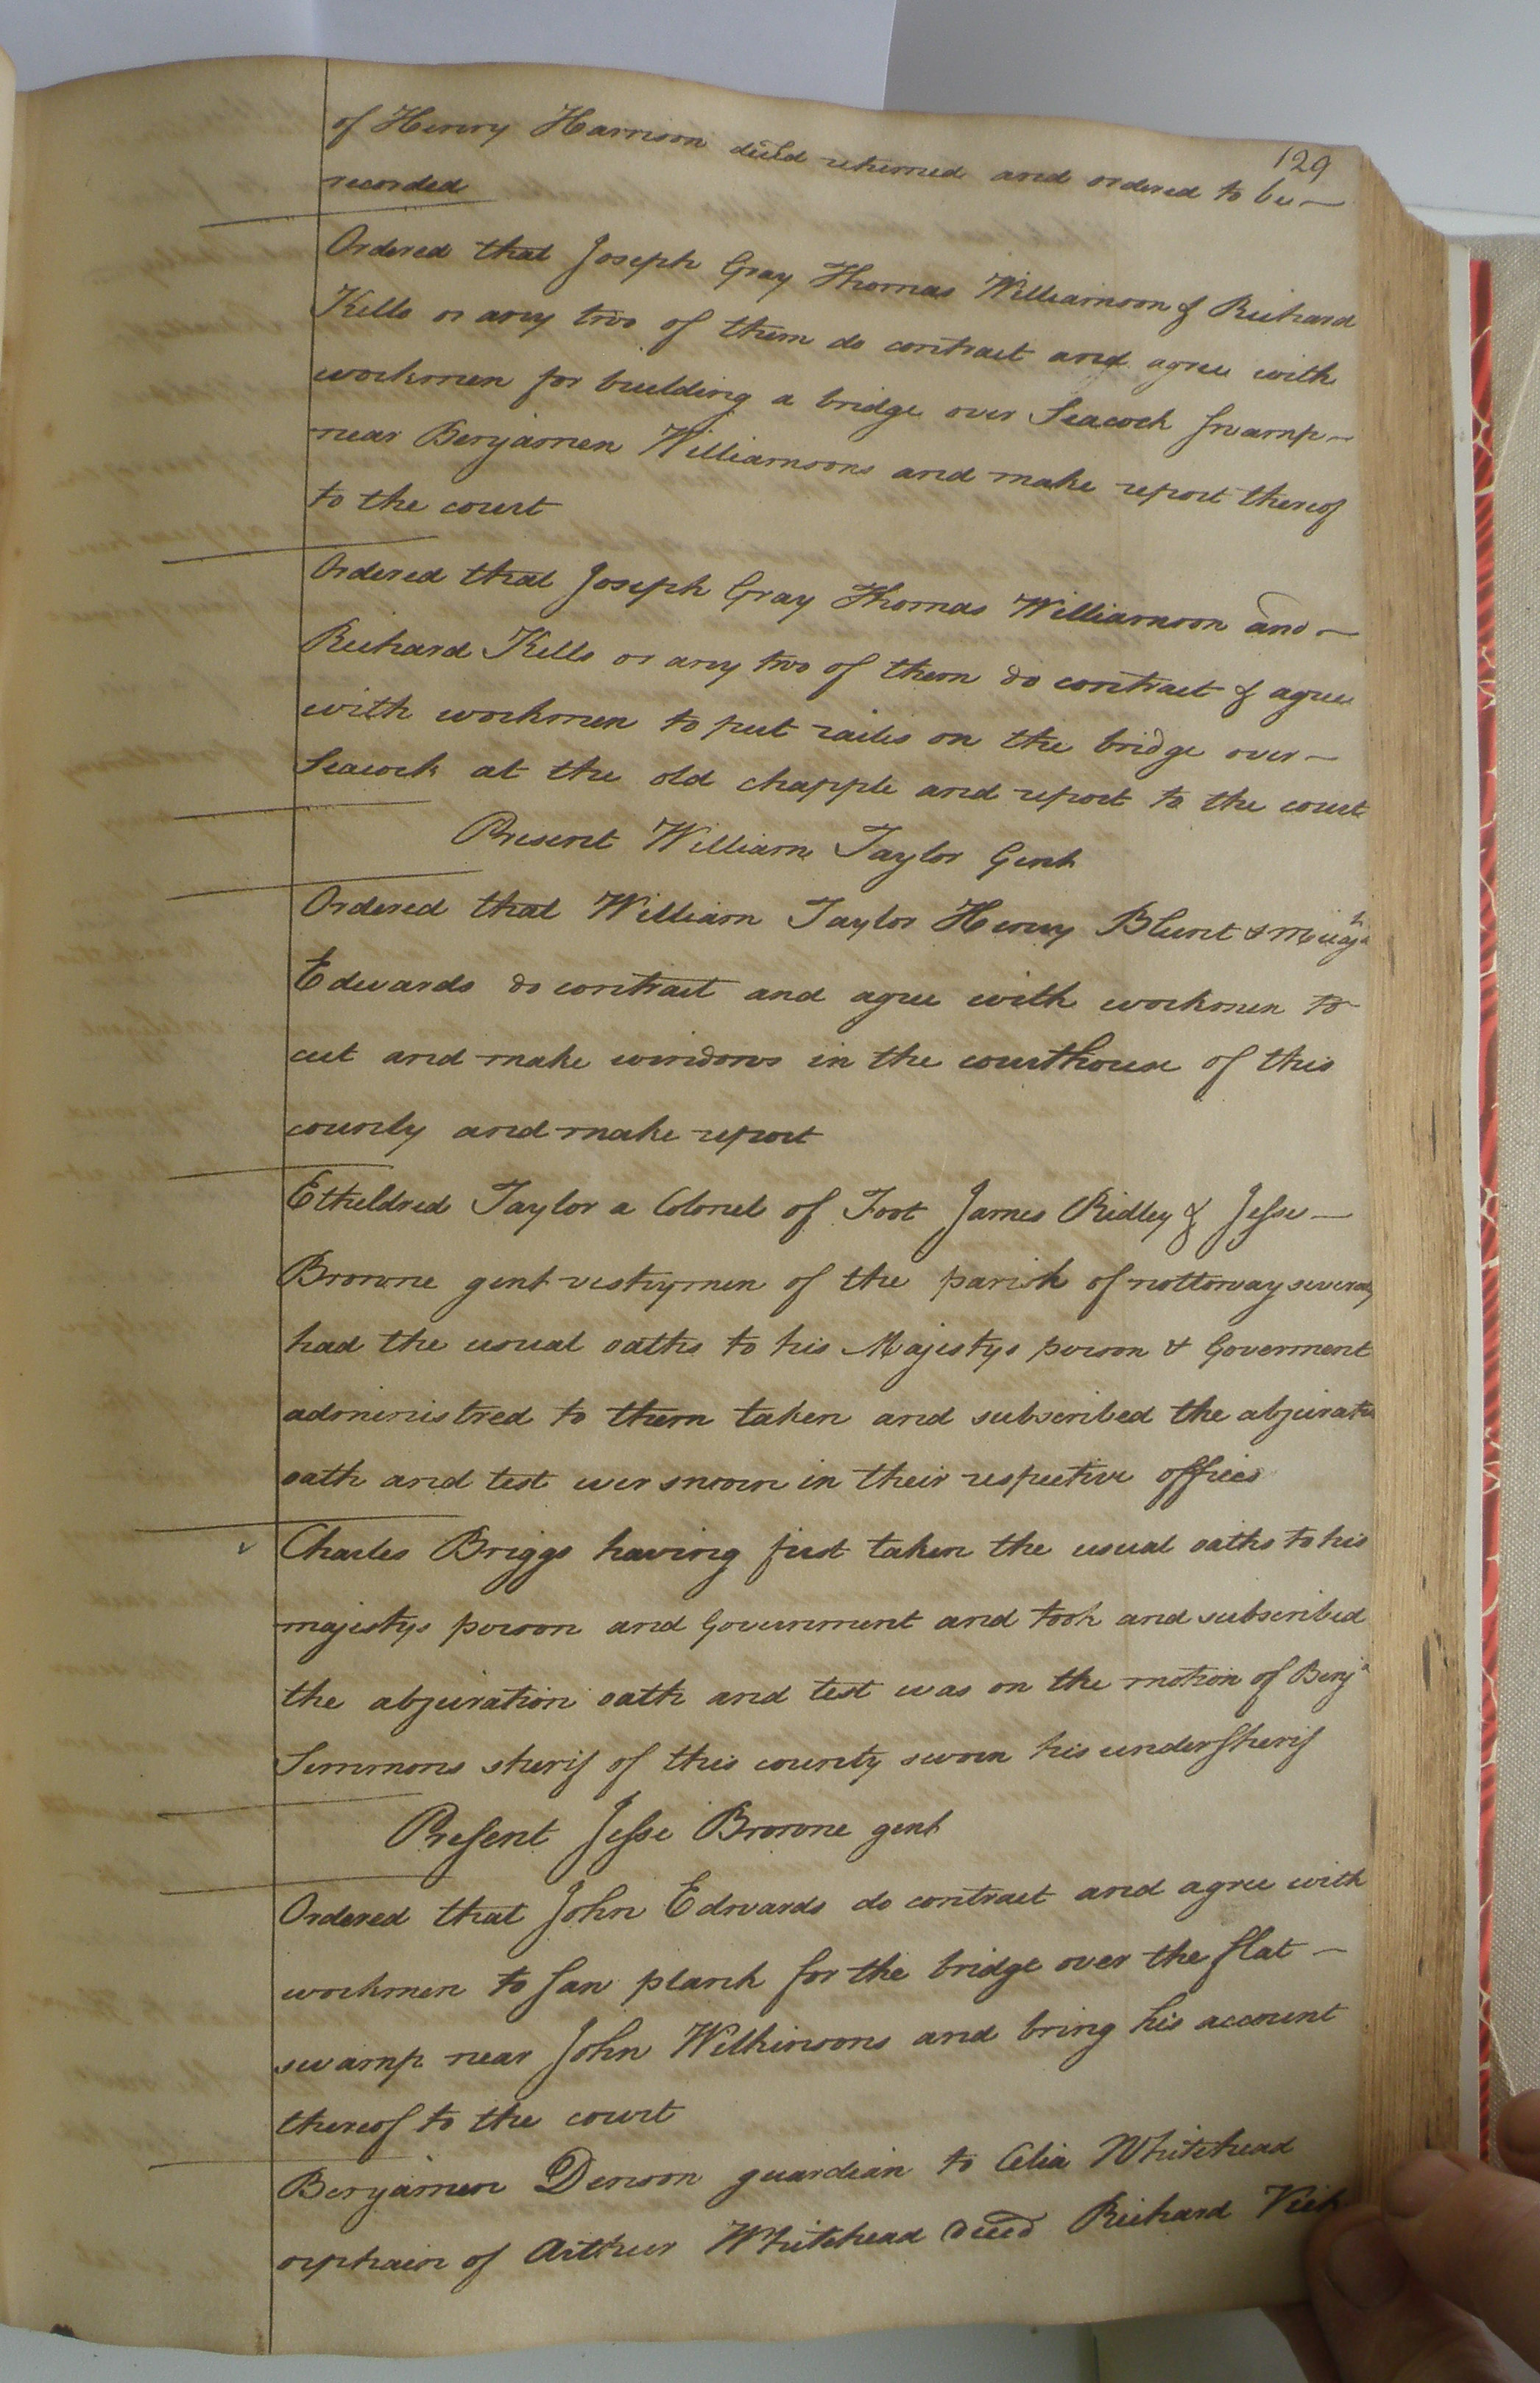 129
of Henry Harrison deced returned and ordered to be
recorded
Ordered that Joseph Gray Thomas Williamson & Richard
Kello or any two of them do contract and agree with
workmen for building a bridge over Seacock swamp
near Benjamen Williamsons and make report thereof
to the court
Ordered that Joseph Gray Thomas Williamson and
Richard Kello or any two of them do contract & agree
with workmen to put railes on the bridge over
Seacock at the old chapple and report to the court
Present William Taylor Gent
Ordered that William Taylor Henry Blunt &
Edwards do contract and agree with workmen to
cut and make windows in the courthouse of this
county and make report
Etheldred Taylor a Colonel of Foot James Ridley & Jesse
Browne gent vestrymen of the parish of nottoway
had the usual oaths to his Majestys person & Goverment
administred to them taken and subscribed the
oath and test wer sworn in their respective offices
Charles Briggs having first taken the usual oaths to his
majestys person and Government and took and subscribed
the abjuration oath and test was on the motion of Benja
Simmons sherif of this county sworn his undersherif
Present Jesse Browne gent
Ordered that John Edwards do contract and agree with
workmen to saw plank for the bridge over the flat
swamp near John Wilkinsons and bring his account
thereof to the court
Benjamen Denson guardian to Celia Whitehead
orphain of Arthur Whitehead deced Richard Vick